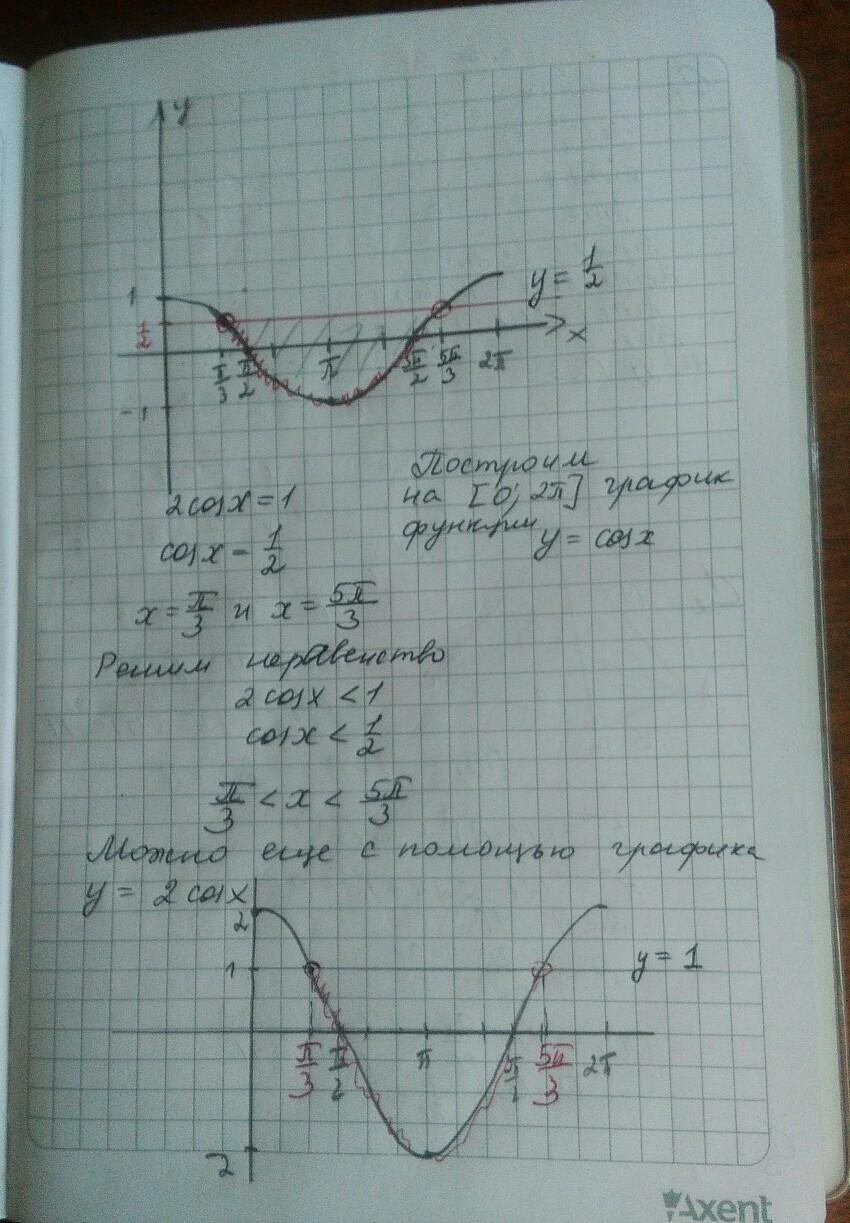 y
1
y = 1/2
1/2
x
π/3 π/2 π 5π/2 5π/3 2π
-1
Построим
на [0; 2π] график
функции y = cosx
2cosx = 1
cosx = 1/2
x = π/3 и x = 5π/3
Решим неравенство
2cosx < 1
cosx < 1/2
π/3 < x < 5π/3
Можно еще с помощью графика
y = 2cosx
2
1
y = 1
π/3 π/2 π 5π/3 2π
-2
Axent